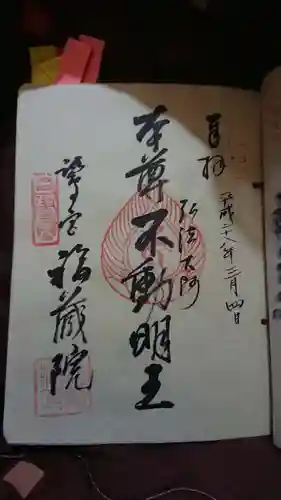 奉拝
平成二八年三月四日
弘法大師
本尊不動明王
鷲子山
福蔵院